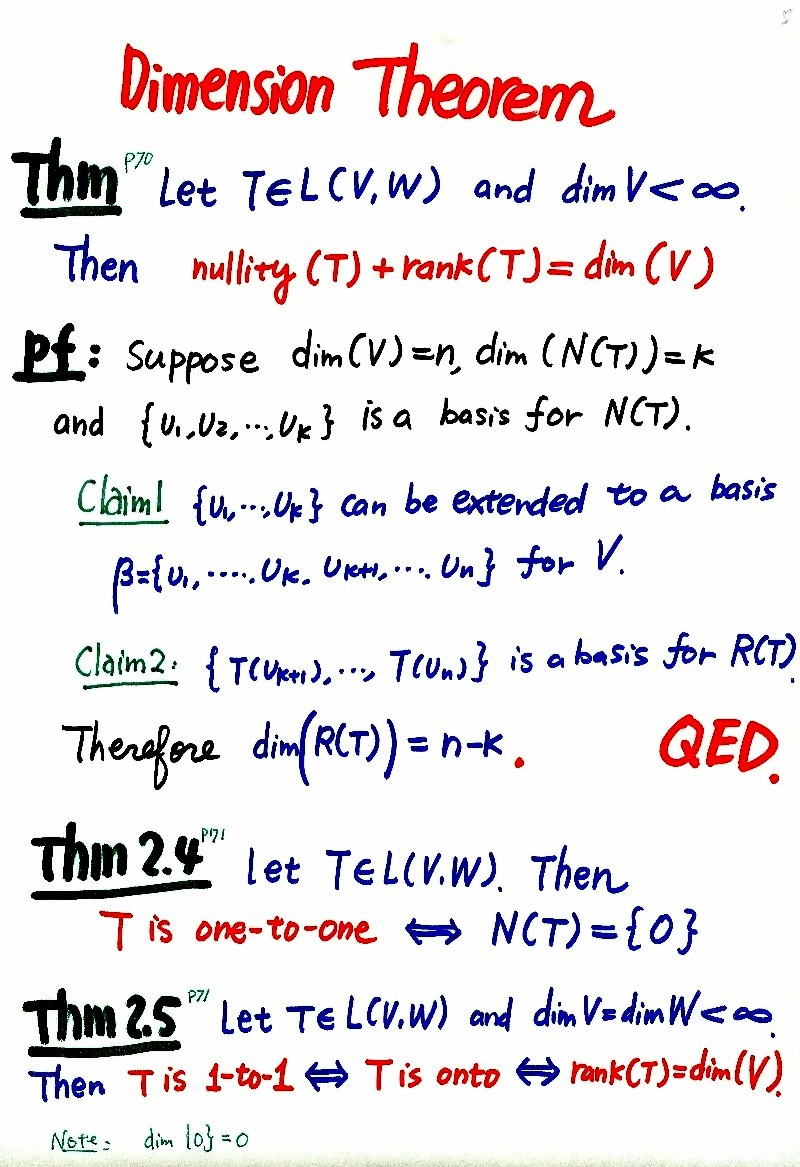 Dimension Theorem
Thm P70 Let T∈L(V,W) and dim V < ∞.
Then nullity (T) + rank(T) = dim (V)
pf: Suppose dim(V)=n, dim (N(T))=k
and {u₁,u₂,⋯,uₖ} is a basis for N(T).
Claim1 {u₁,⋯,uₖ} can be extended to a basis
β={u₁,⋯⋯,uₖ,uₖ₊₁,⋯,uₙ} for V.
Claim2: {T(uₖ₊₁),⋯, T(uₙ)} is a basis for R(T).
Therefore dim(R(T)) = n-k. QED.
Thm 2.4 P71 let T∈L(V,W). Then
T is one-to-one ⟺ N(T)={0}
Thm 2.5 P71 Let T∈L(V,W) and dim V=dim W<∞.
Then T is 1-to-1 ⟺ T is onto ⟺ rank(T)=dim(V).
Note: dim {0}=0